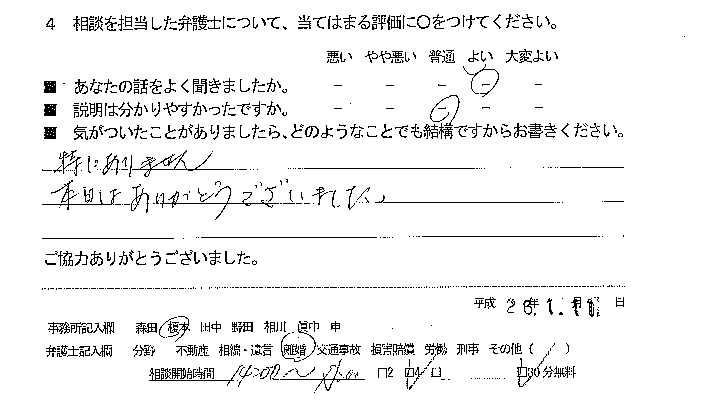 4 相談を担当した弁護士について、当てはまる評価に○をつけてください。
悪い やや悪い 普通 よい 大変よい
■ あなたの話をよく聞きましたか。 － － － － －
■ 説明は分かりやすかったですか。 － － － － －
■ 気がついたことがありましたら、どのようなことでも結構ですからお書きください。
特にありません
本日はありがとうございました。
ご協力ありがとうございました。
平成 26年 1. 月 日
事務所記入欄 森田 榎本 田中 野田 相川 中 申
弁護士記入欄 分野 不動産 相続・遺言 離婚 交通事故 損害賠償 労働 刑事 その他（ ）
相談開始時間 14:00〜 □2 □4 □ □30分無料